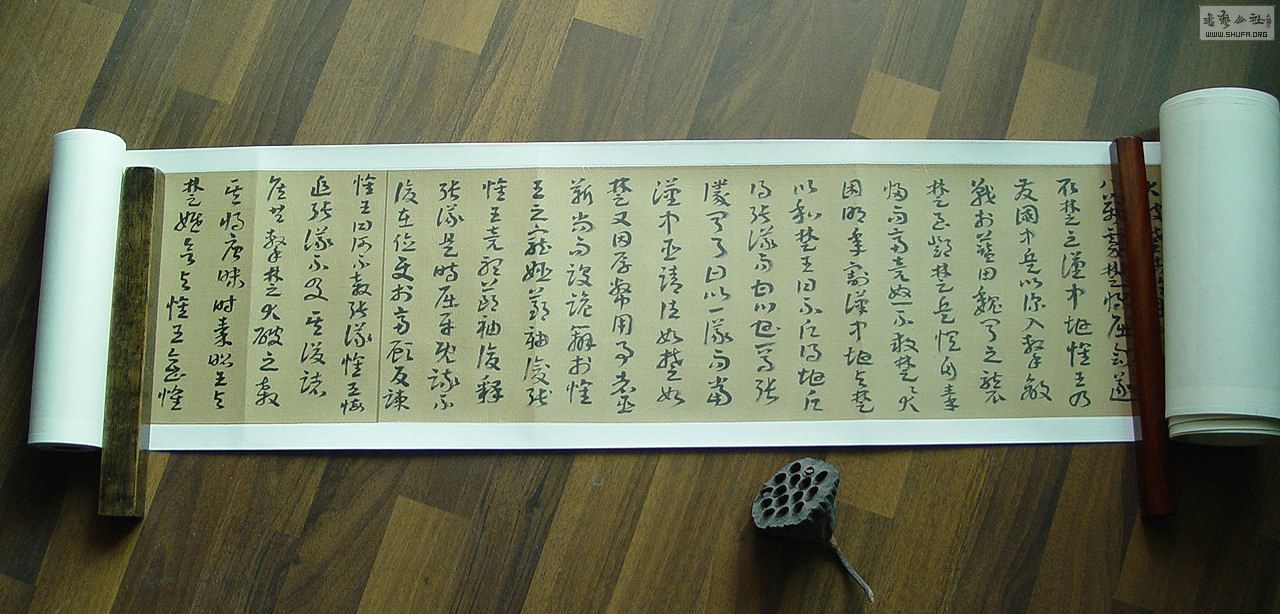 書藝公社
WWW.SHUFA.ORG
八萬虜楚將屈匄遂
取楚之漢中地懷王乃
發國中兵以深入擊
戰於藍田魏聞之襲
楚至鄧楚兵懼自秦
歸而齊竟怒不救楚楚大
困明年割漢中地與楚
以和楚王曰不願得地願
得張儀而甘心焉張
儀聞乃曰以一儀而當
漢中臣請往如楚如
楚又因厚幣用事者臣
靳尚而設詭辯於懷
王之寵姬鄭袖復張
懷王竟聽鄭袖復釋
張儀是時屈平既疏不
復在位使於齊顧反諫
懷王曰何不殺張儀懷王悔
追張儀不及其後諸
侯共擊楚大破之殺
其將唐昧時秦昭王與
楚婚欲與懷王會懷